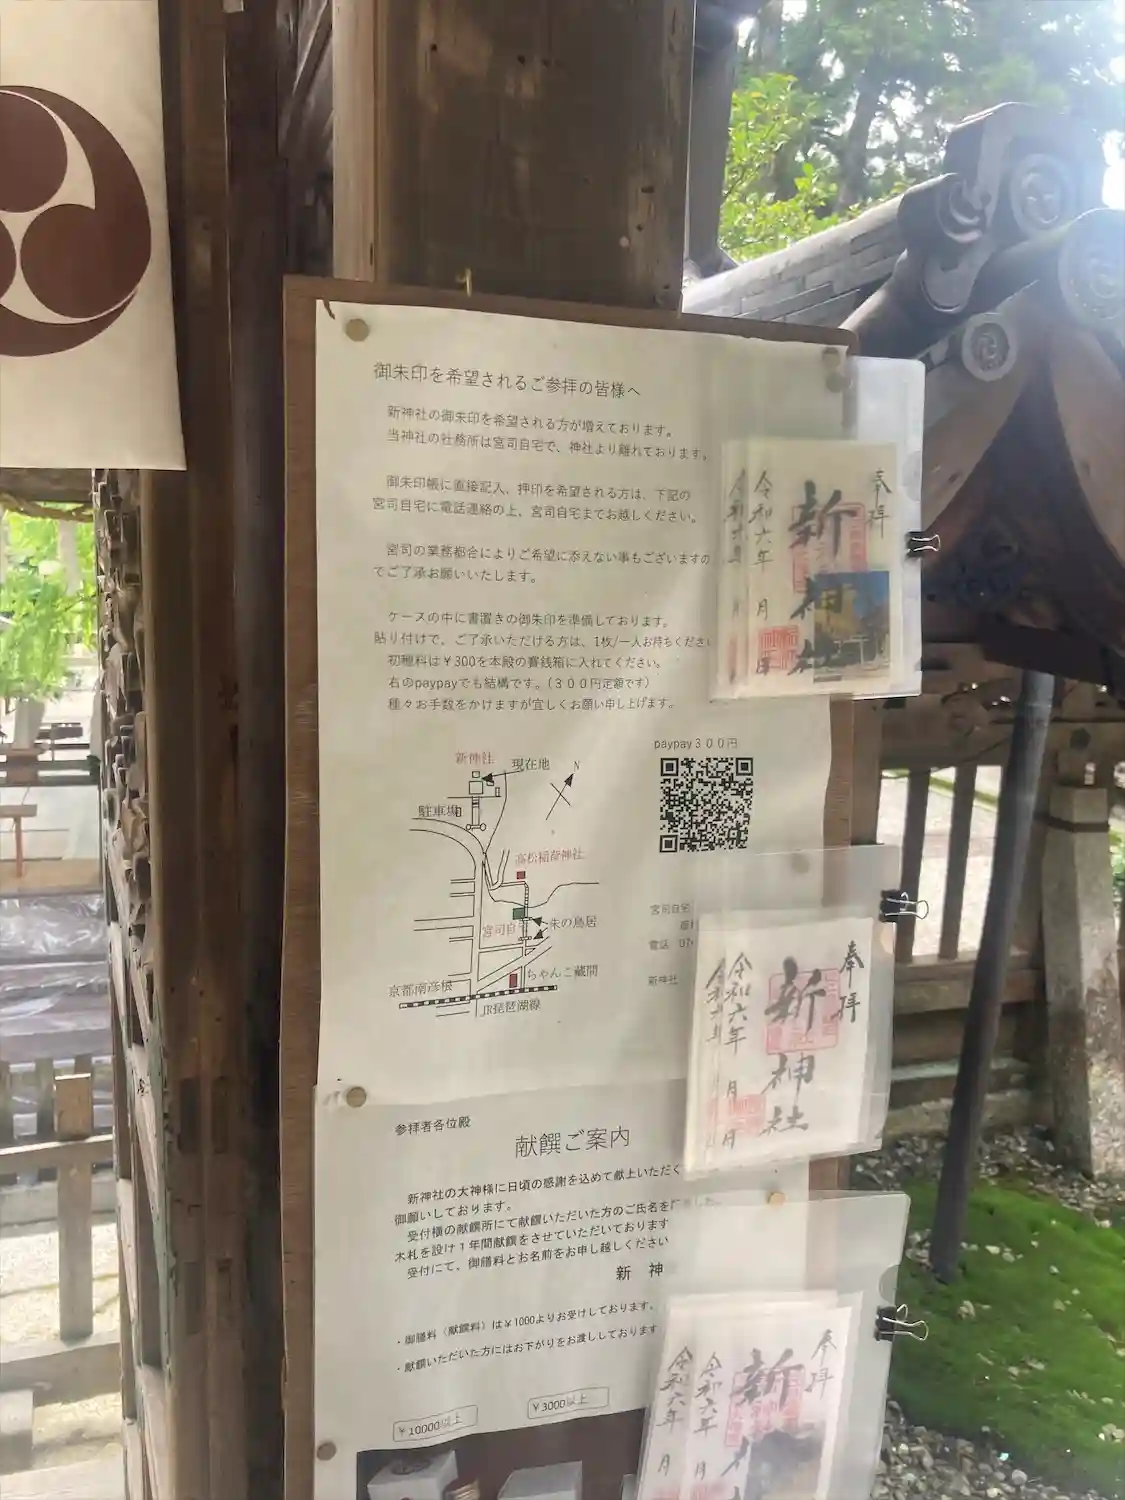 御朱印を希望されるご参拝の皆様へ
新神社の御朱印を希望される方が増えております。
当神社の社務所は宮司自宅で、神社より離れております。
御朱印帳に直接記入、押印を希望される方は、下記の
宮司自宅に電話連絡の上、宮司自宅までお越しください。
宮司の業務都合によりご希望に添えない事もございますの
でご了承お願いいたします。
ケースの中に書置きの御朱印を準備しております。
貼り付けで、ご了承いただける方は、1枚/一人お持ちくださ
初穂料は￥300を本殿の賽銭箱に入れてください。
右のpaypayでも結構です。(３００円定額です)
種々お手数をかけますが宜しくお願い申し上げます。
paypay３００円
新神社
現在地
N
駐車場
高松稲荷神社
宮司自宅
朱の鳥居
ちゃんこ蔵間
京都南彦根
JR琵琶湖線
宮司自宅
電話
新神社
参拝者各位殿
献饌ご案内
新神社の大神様に日頃の感謝を込めて献上いただく
御願いしております。
受付横の献饌所にて献饌いただいた方のご氏名を
木札を設け１年間献饌をさせていただいております
受付にて、御膳料とお名前をお申し越しください
新 神
・御膳料（献饌料）は￥1000よりお受けしております。
・献饌いただいた方にはお下がりをお渡ししております
￥10000以上
￥3000以上
奉拝
新神社
令和六年 月 日
令和六年 月
奉拝
新神社
令和六年 月 日
令和六年
奉拝
新
令和六年 月
令和六年 月